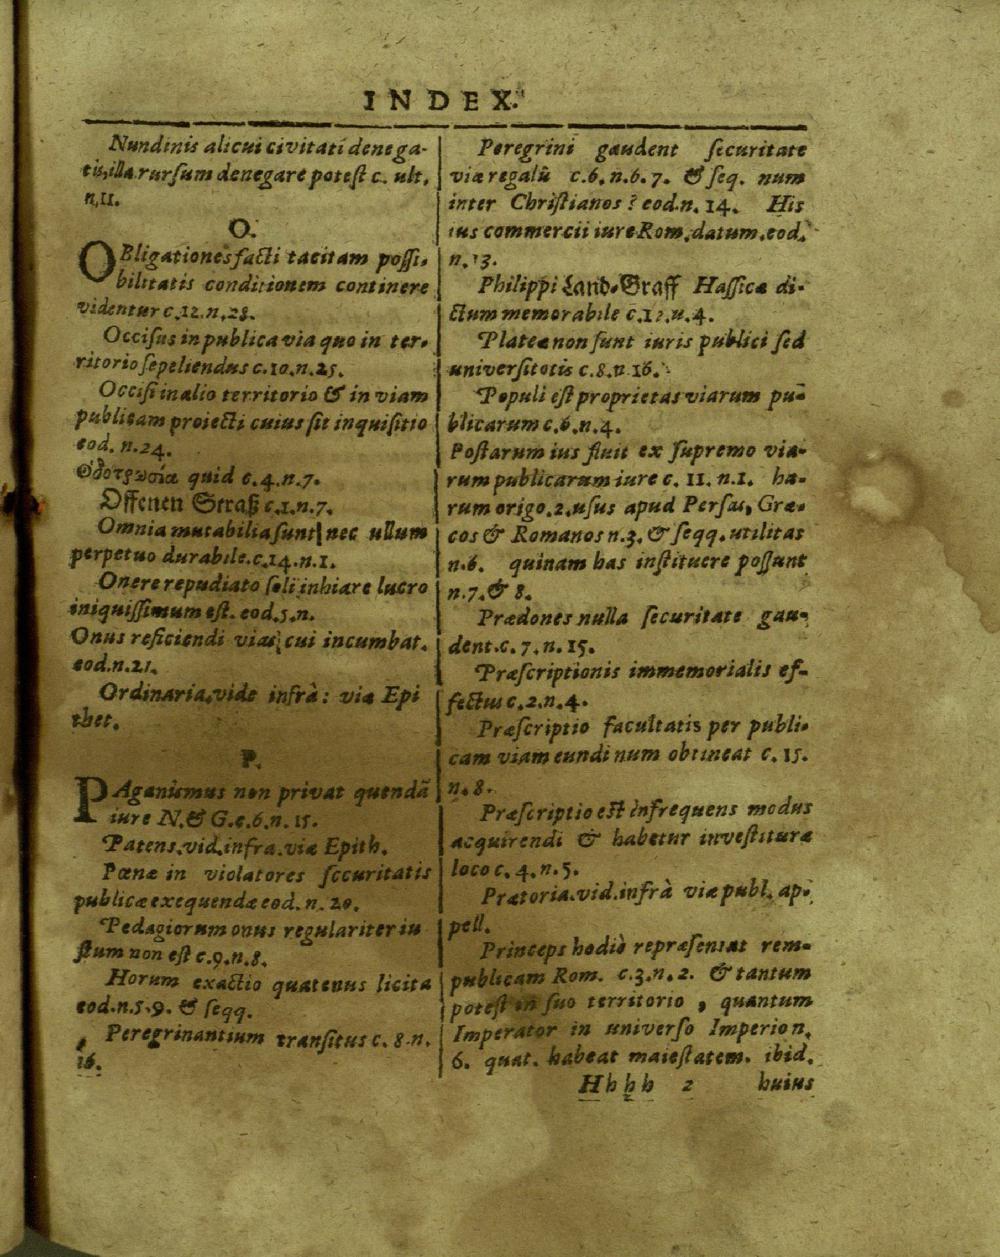 INDEX.
Nundinis alicui civitati denega-
tis, illa rursum denegare potest c. ult.
n. 11.
O.
OBligationes facti tacitam possi-
bilitatis conditionem continere
videntur c. 12. n. 28.
Occisus in publica via quo in ter-
ritorio sepeliendus c. 10. n. 25.
Occisi in alio territorio & in viam
publicam proiecti cuius sit inquisitio
eod. n. 24.
quid c. 4. n. 7.
Offenen Straß c. 1. n. 7.
Omnia mutabilia sunt nec ullum
perpetuo durabile. c. 14. n. 1.
Onere repudiato soli inhiare lucro
iniquissimum est. eod. 5. n.
Onus reficiendi vias cui incumbat.
eod. n. 21.
Ordinaria, vide infrà: via Epi
thet.
P.
PAganismus non privat quendã
iure N. & G. c. 6. n. 15.
Patens. vid. infra. via Epith.
Pœnæ in violatores securitatis
publicæ exequendæ eod. n. 20.
Pedagiorum onus regulariter iu
stum non est c. 9. n. 8.
Horum exactio quatenus licita
eod. n. 5. 9. & seqq.
Peregrinantium transitus c. 8. n.
16.
Peregrini gaudent securitate
viæ regalis c. 6. n. 6. 7. & seq. num
inter Christianos? eod. n. 14. His
ius commercii iure Rom. datum. eod.
n. 13.
Philippi Land-Graff Hassicæ di-
ctum memorabile c. n. 4.
Plateæ non sunt iuris publici sed
universitatis c. 8. n 16.
Populi est proprietas viarum pu-
blicarum c. 6. n. 4.
Postarum ius fluit ex supremo via-
rum publicarum iure c. 11. n. 1. ha-
rum origo. 2. usus apud Persas, Græ-
cos & Romanos n. 3. & seqq. utilitas
n. 6. quinam has instituere possunt
n. 7. & 8.
Prædones nulla securitate gau-
dent. c. 7. n. 15.
Præscriptionis immemorialis ef-
fectus c. 2. n. 4.
Præscriptio facultatis per publi-
cam viam eundi num obtineat c. 15.
n. 8.
Præscriptio est infrequens modus
acquirendi & habetur investituræ
loco c. 4. n. 5.
Prætoria. vid. infrà viæ publ. ap-
pell.
Princeps hodiè repræsentat rem-
publicam Rom. c. 3. n. 2. & tantum
potest in suo territorio, quantum
Imperator in universo Imperio n.
6. quat. habeat maiestatem. ibid.
Hhhh 2 huius